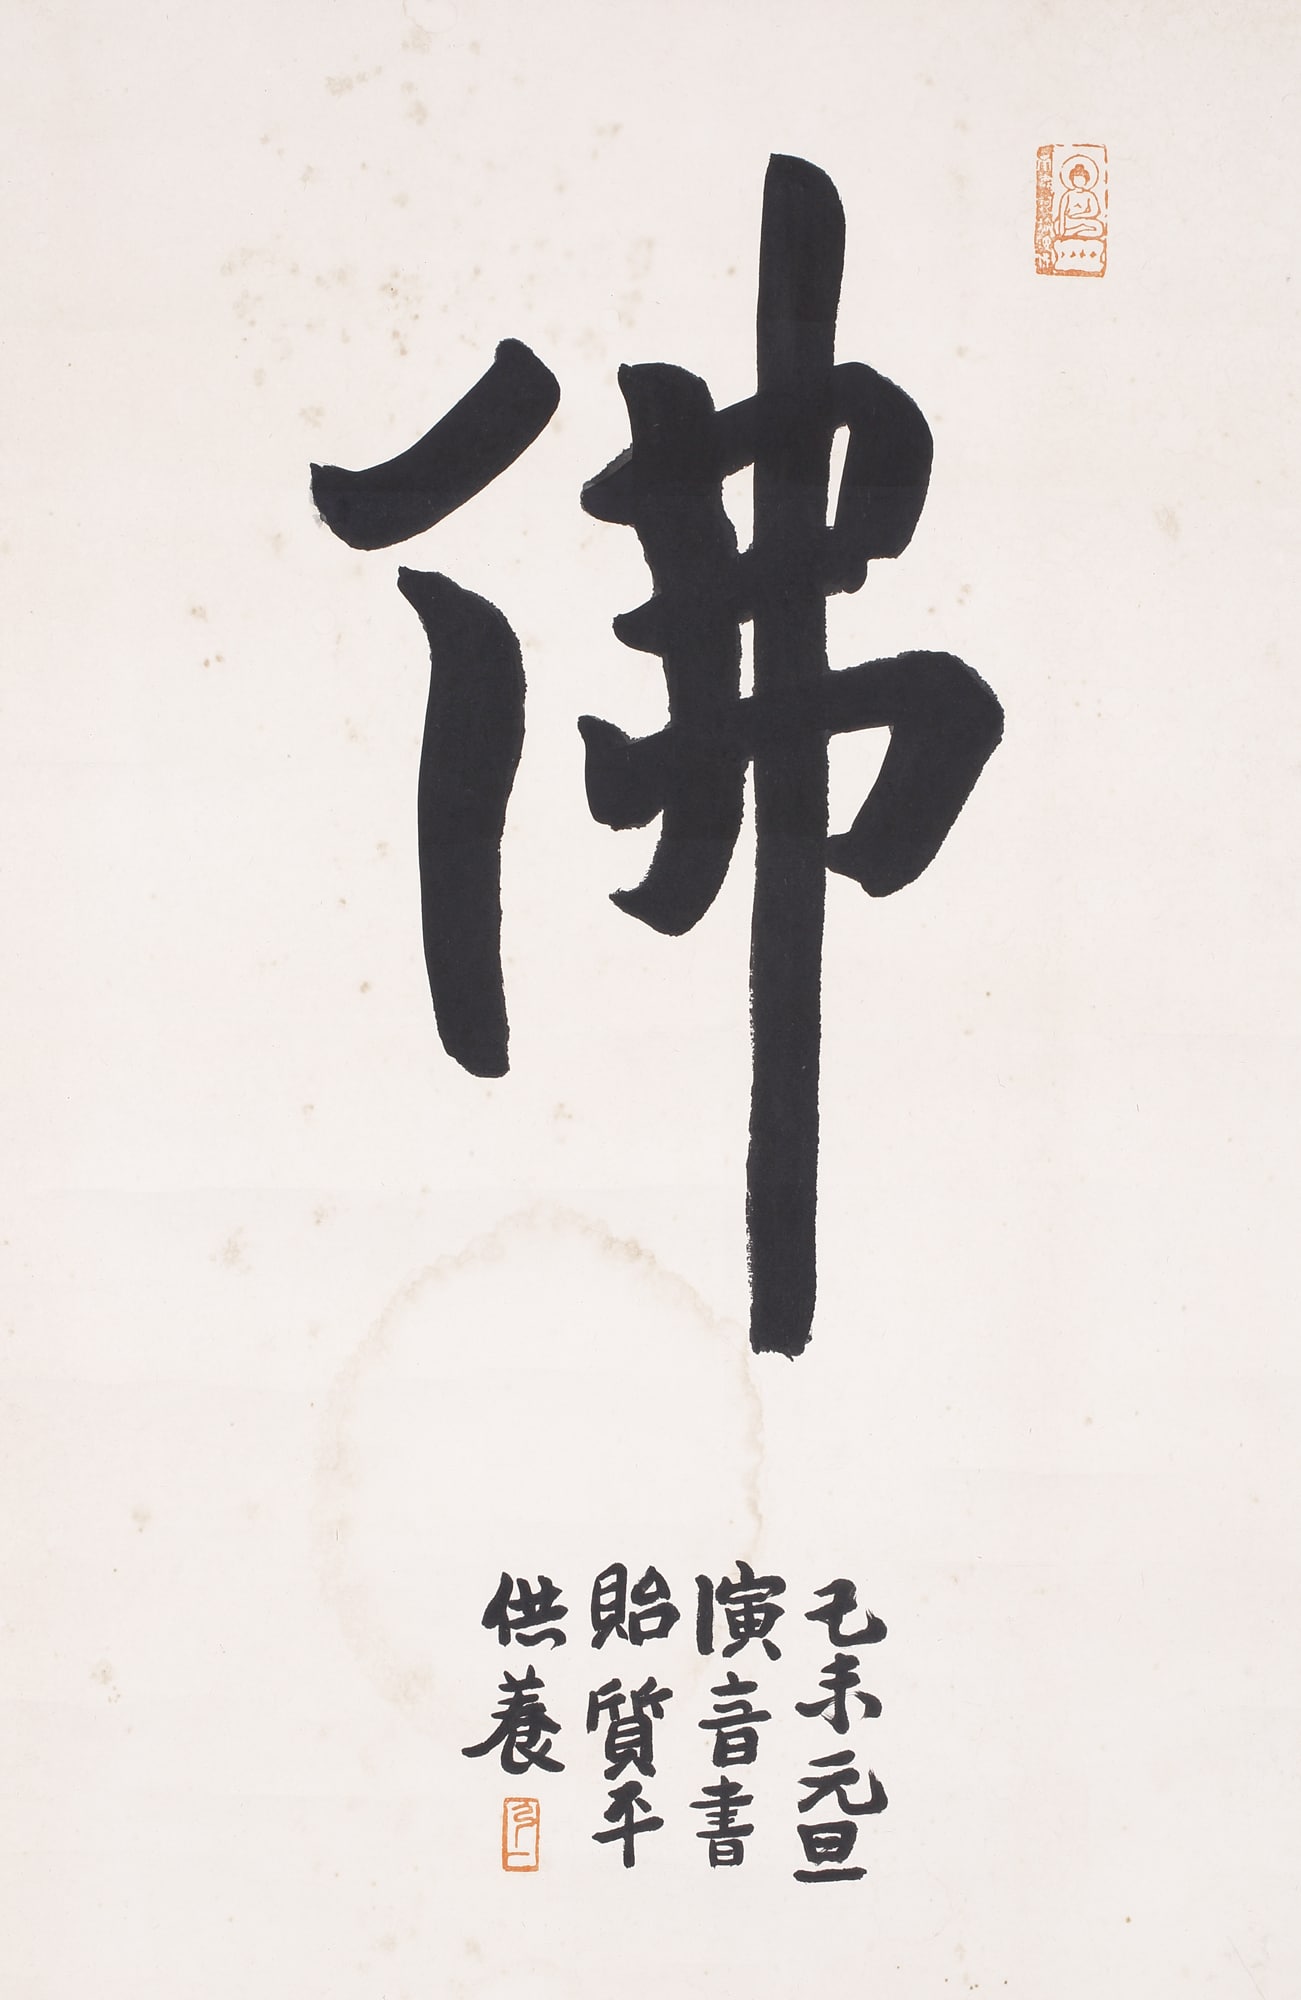 佛
己未元旦
演音書
貽質平
供養